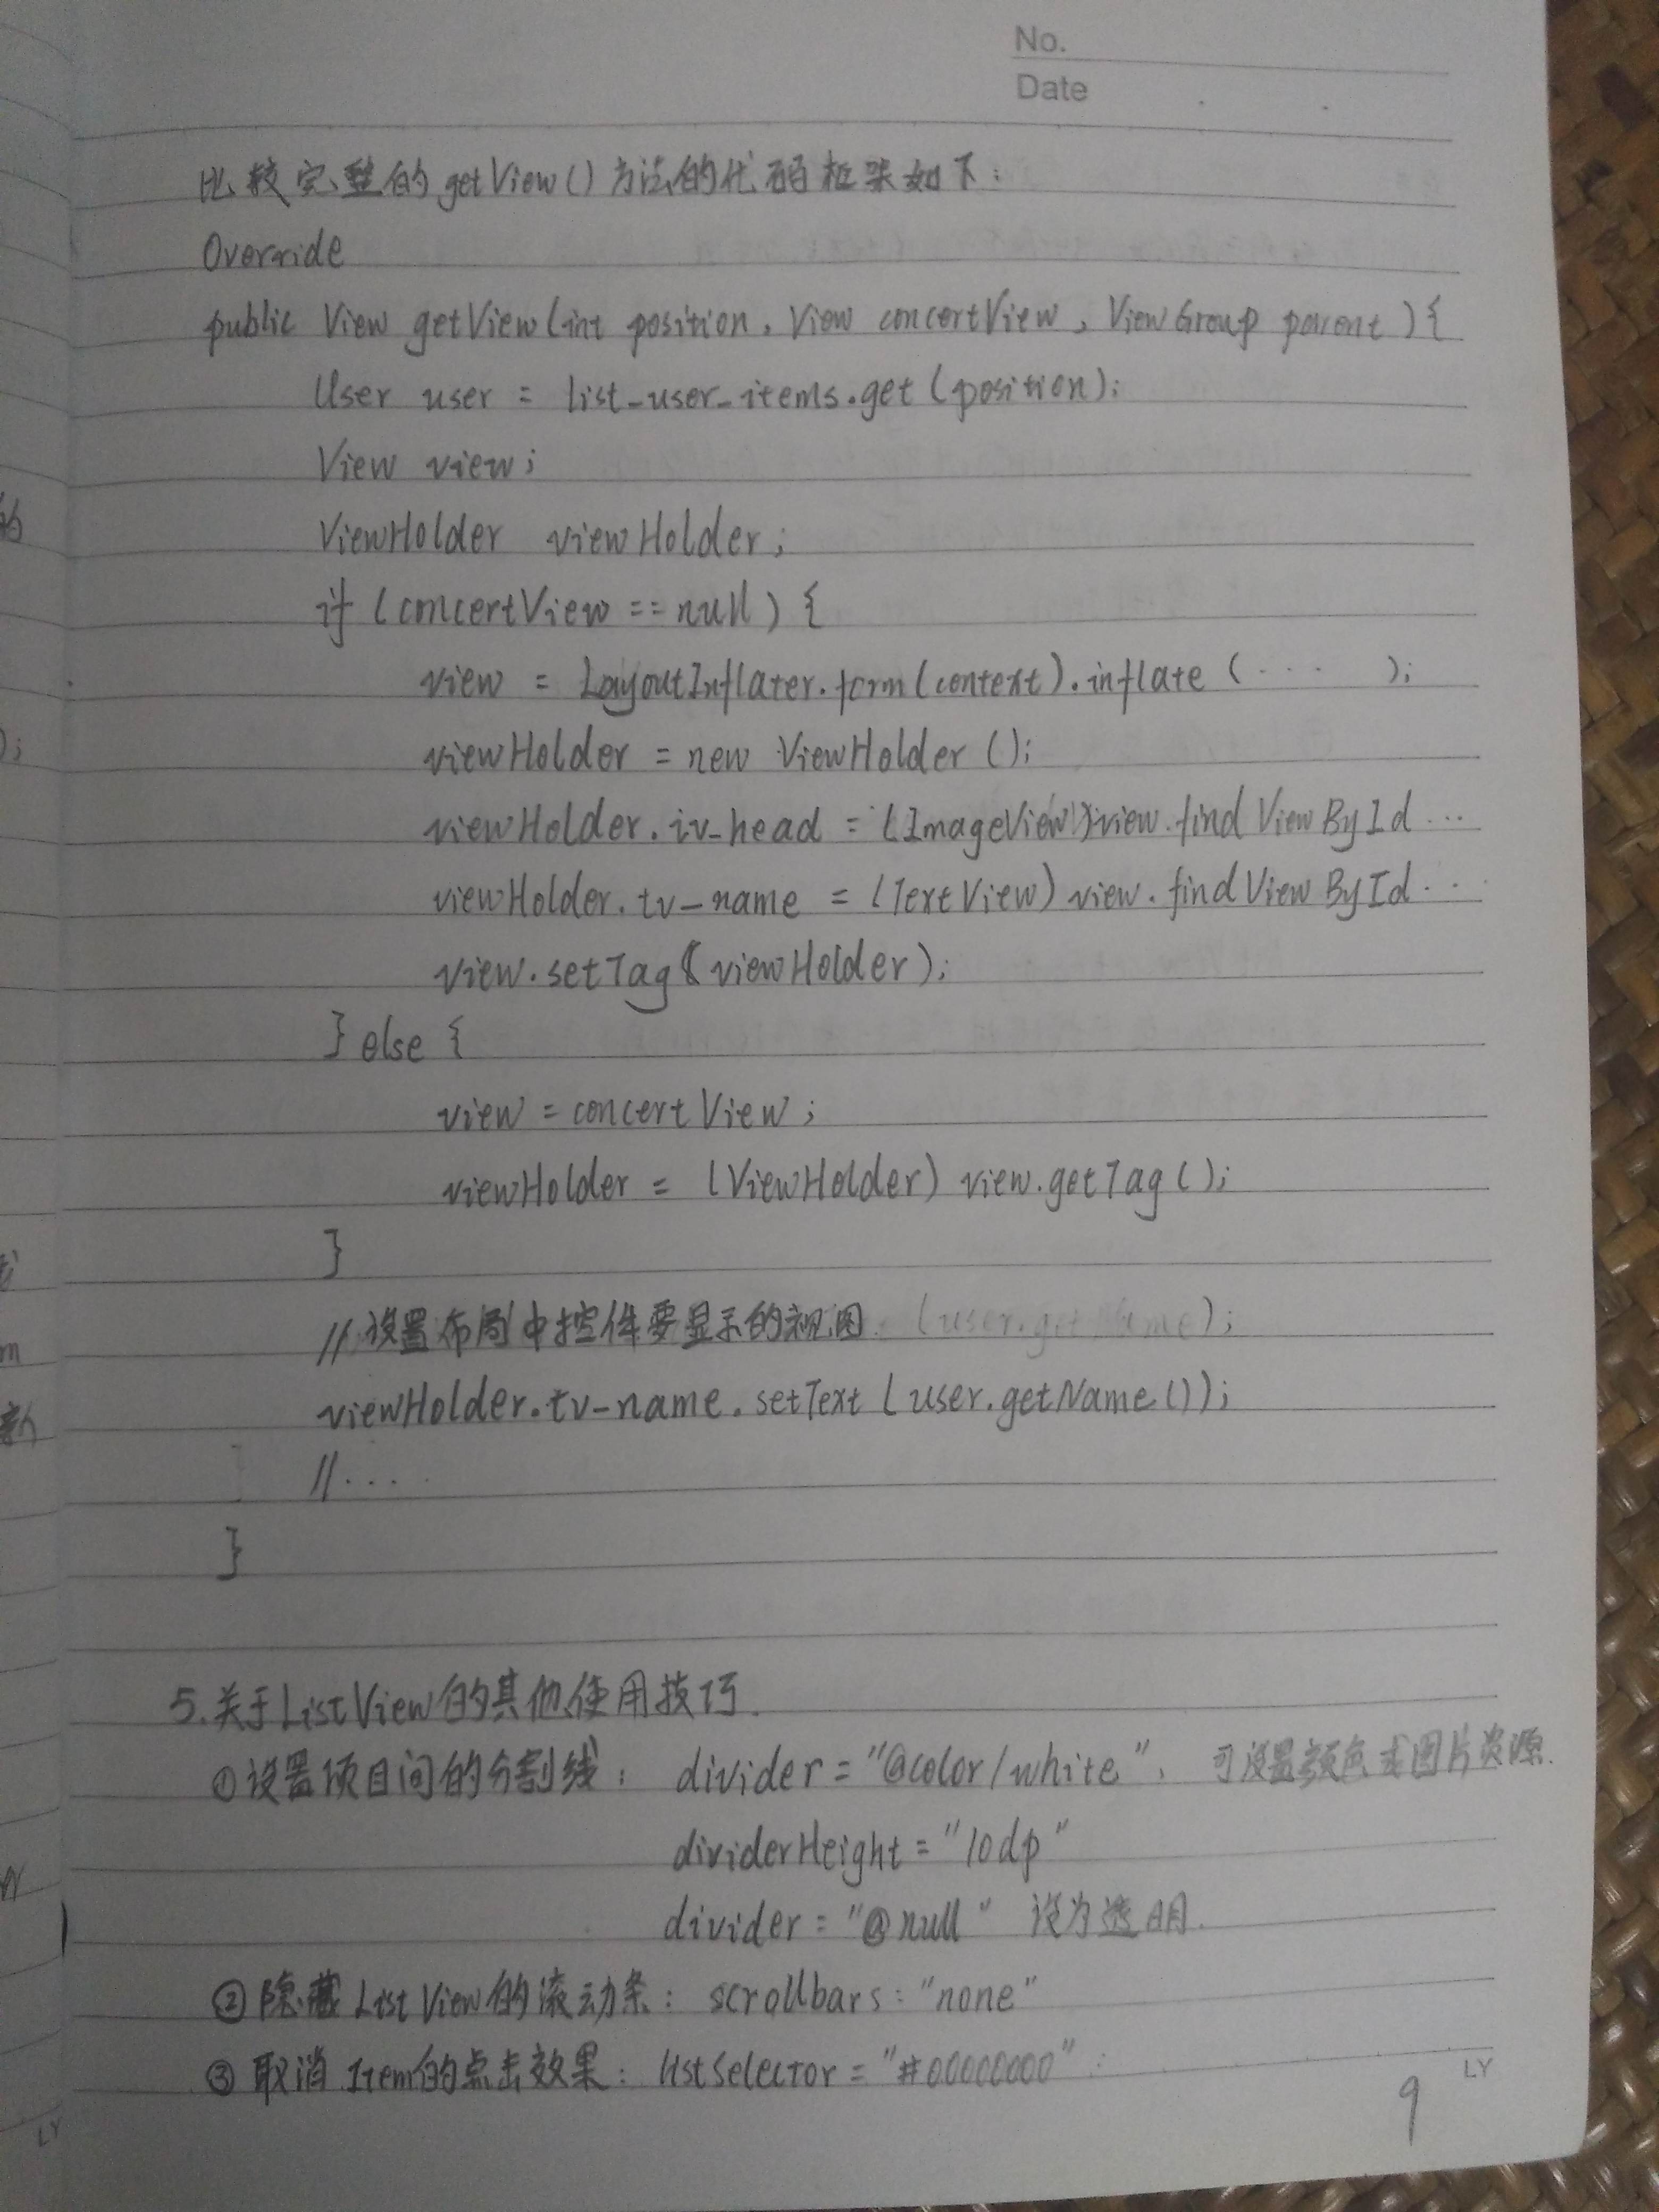 No.
Date
比较完整的getView()方法的代码框架如下:
Override
public View getView(int position, View concertView, ViewGroup parent){
User user = list_user_items.get(position);
View view;
ViewHolder viewHolder;
if (concertView == null) {
view = LayoutInflater.form(context).inflate(... );
viewHolder = new ViewHolder();
viewHolder.iv-head = (ImageView)view.findViewById...
viewHolder.tv-name = (TextView)view.findViewById...
view.setTag(viewHolder);
} else {
view = concertView;
viewHolder = (ViewHolder) view.getTag();
}
//设置布局中控件要显示的视图
viewHolder.tv-name.setText(user.getName());
//....
}
5.关于ListView的其他使用技巧.
①设置项目间的分割线: divider="@color/white", 可设置颜色或图片资源.
dividerHeight="10dp"
divider="@null" 设为透明.
②隐藏ListView的滚动条: scrollbars="none"
③取消Item的点击效果: listSelector="#00000000"
9
LY